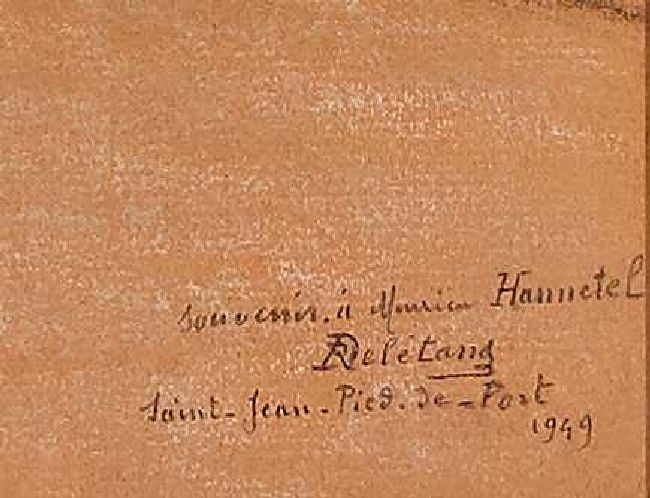 souvenir à Maurice Hannetel
RDelétang
Saint-Jean-Pied-de-Port
1949